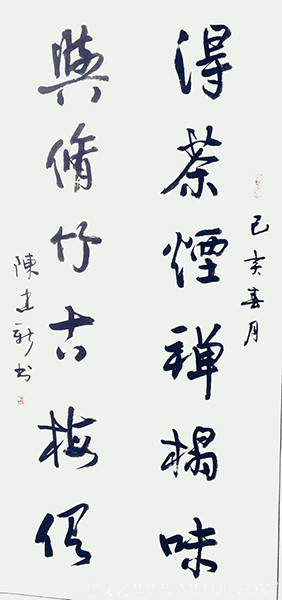 得茶煙禅榻味
己亥春月
與脩竹古梅俱
陳建新书